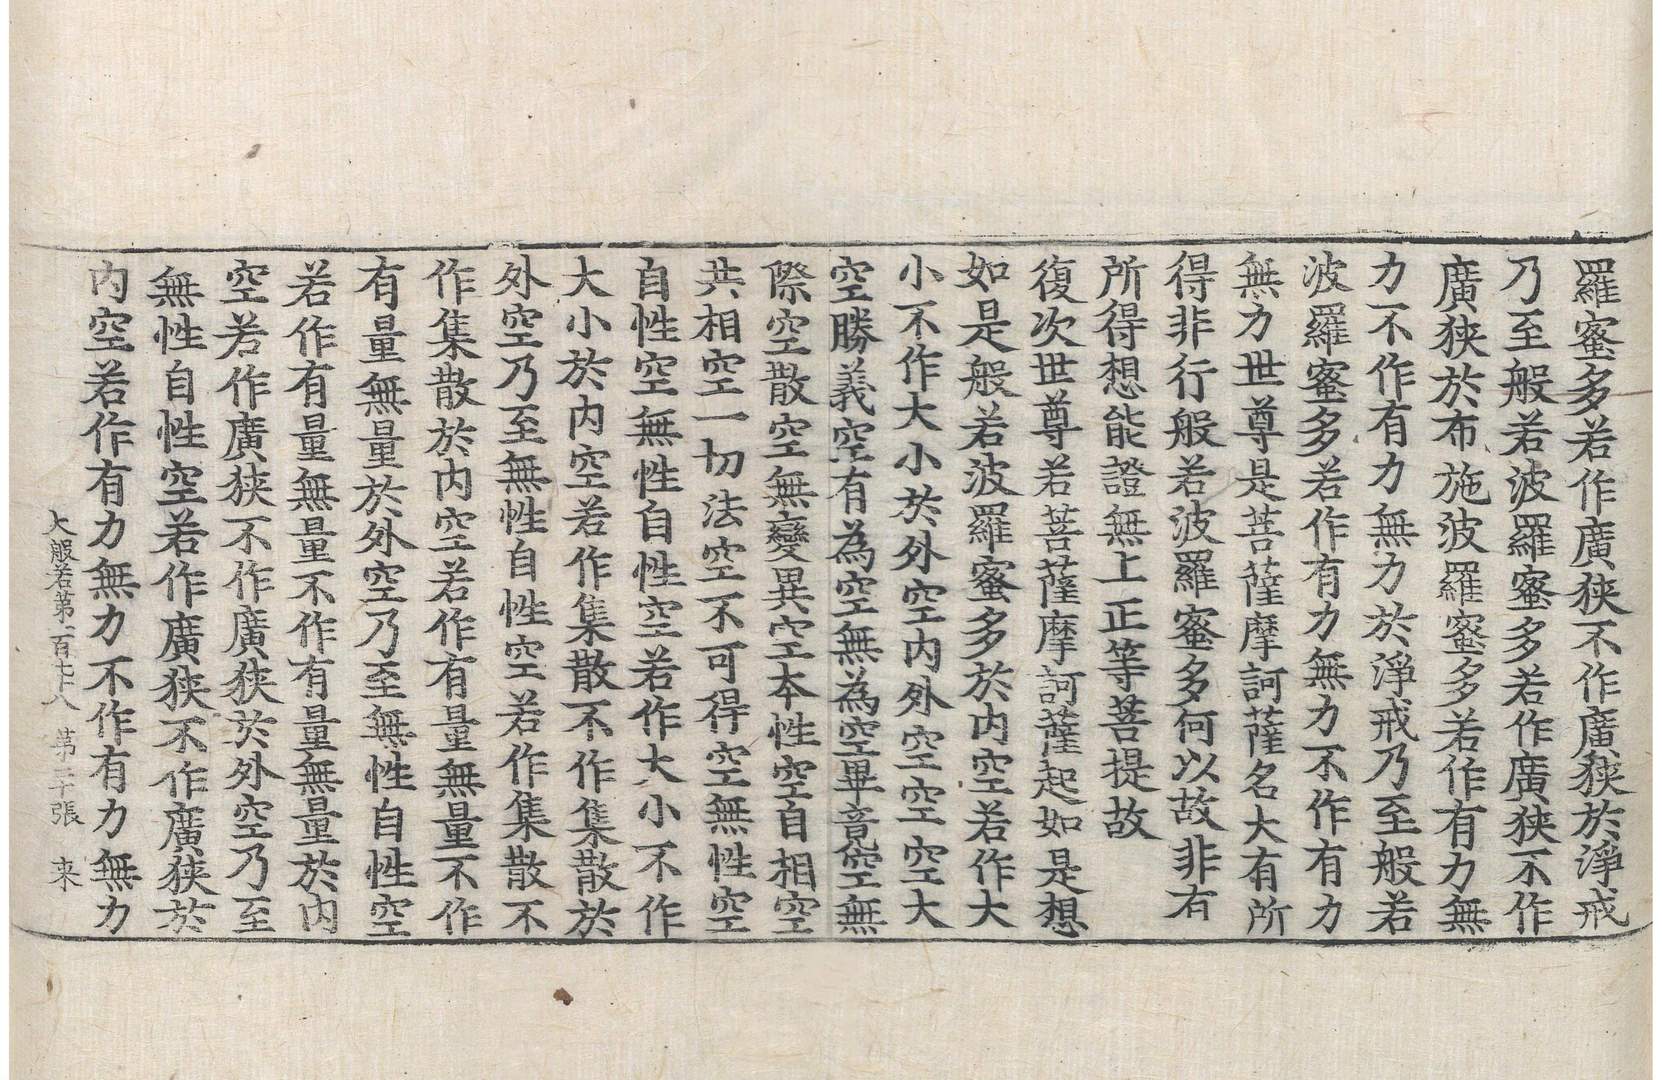 羅蜜多若作廣狹不作廣狹於淨戒
乃至般若波羅蜜多若作廣狹不作
廣狹於布施波羅蜜多若作有力無
力不作有力無力於淨戒乃至般若
波羅蜜多若作有力無力不作有力
無力世尊是菩薩摩訶薩名大有所
得非行般若波羅蜜多何以故非有
所得想能證無上正等菩提故
復次世尊若菩薩摩訶薩起如是想
如是般若波羅蜜多於內空若作大
小不作大小於外空內外空空空大
空勝義空有為空無為空畢竟空無
際空散空無變異空本性空自相空
共相空一切法空不可得空無性空
自性空無性自性空若作大小不作
大小於內空若作集散不作集散於
外空乃至無性自性空若作集散不
作集散於內空若作有量無量不作
有量無量於外空乃至無性自性空
若作有量無量不作有量無量於內
空若作廣狹不作廣狹於外空乃至
無性自性空若作廣狹不作廣狹於
內空若作有力無力不作有力無力
大般若第一百七十八 第二十張 来